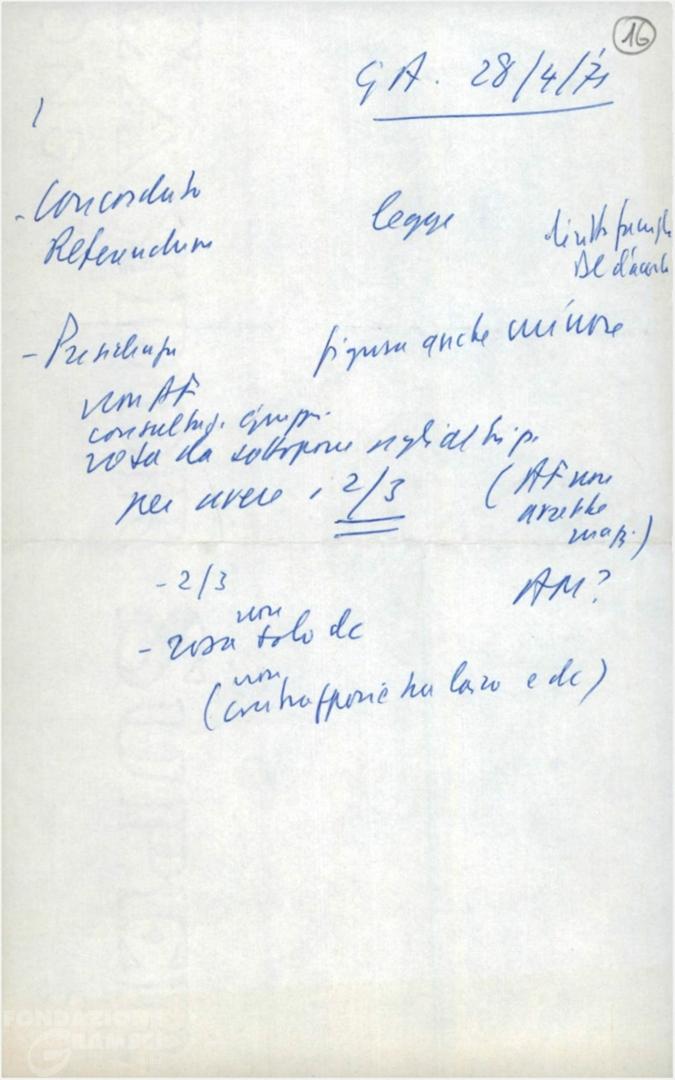 16
G A. 28/4/71
1
- Concordato legge diritto famiglia
Referendum DC d'accordo
- Presidenza figura anche minore
non AF
consultaz. gruppi
rosa da sottoporre agli altri p.
per avere i 2/3 (AF non
avrebbe
magg.)
- 2/3 AM?
non
- rosa solo dc
non
(contrapporre tra laico e dc)
FONDAZIONE
GRAMSCI